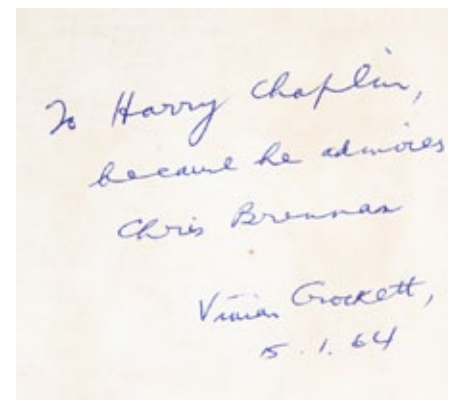 To Harry Chaplin,
because he admires
Chris Brennan
Vivian Crockett,
15.1.64